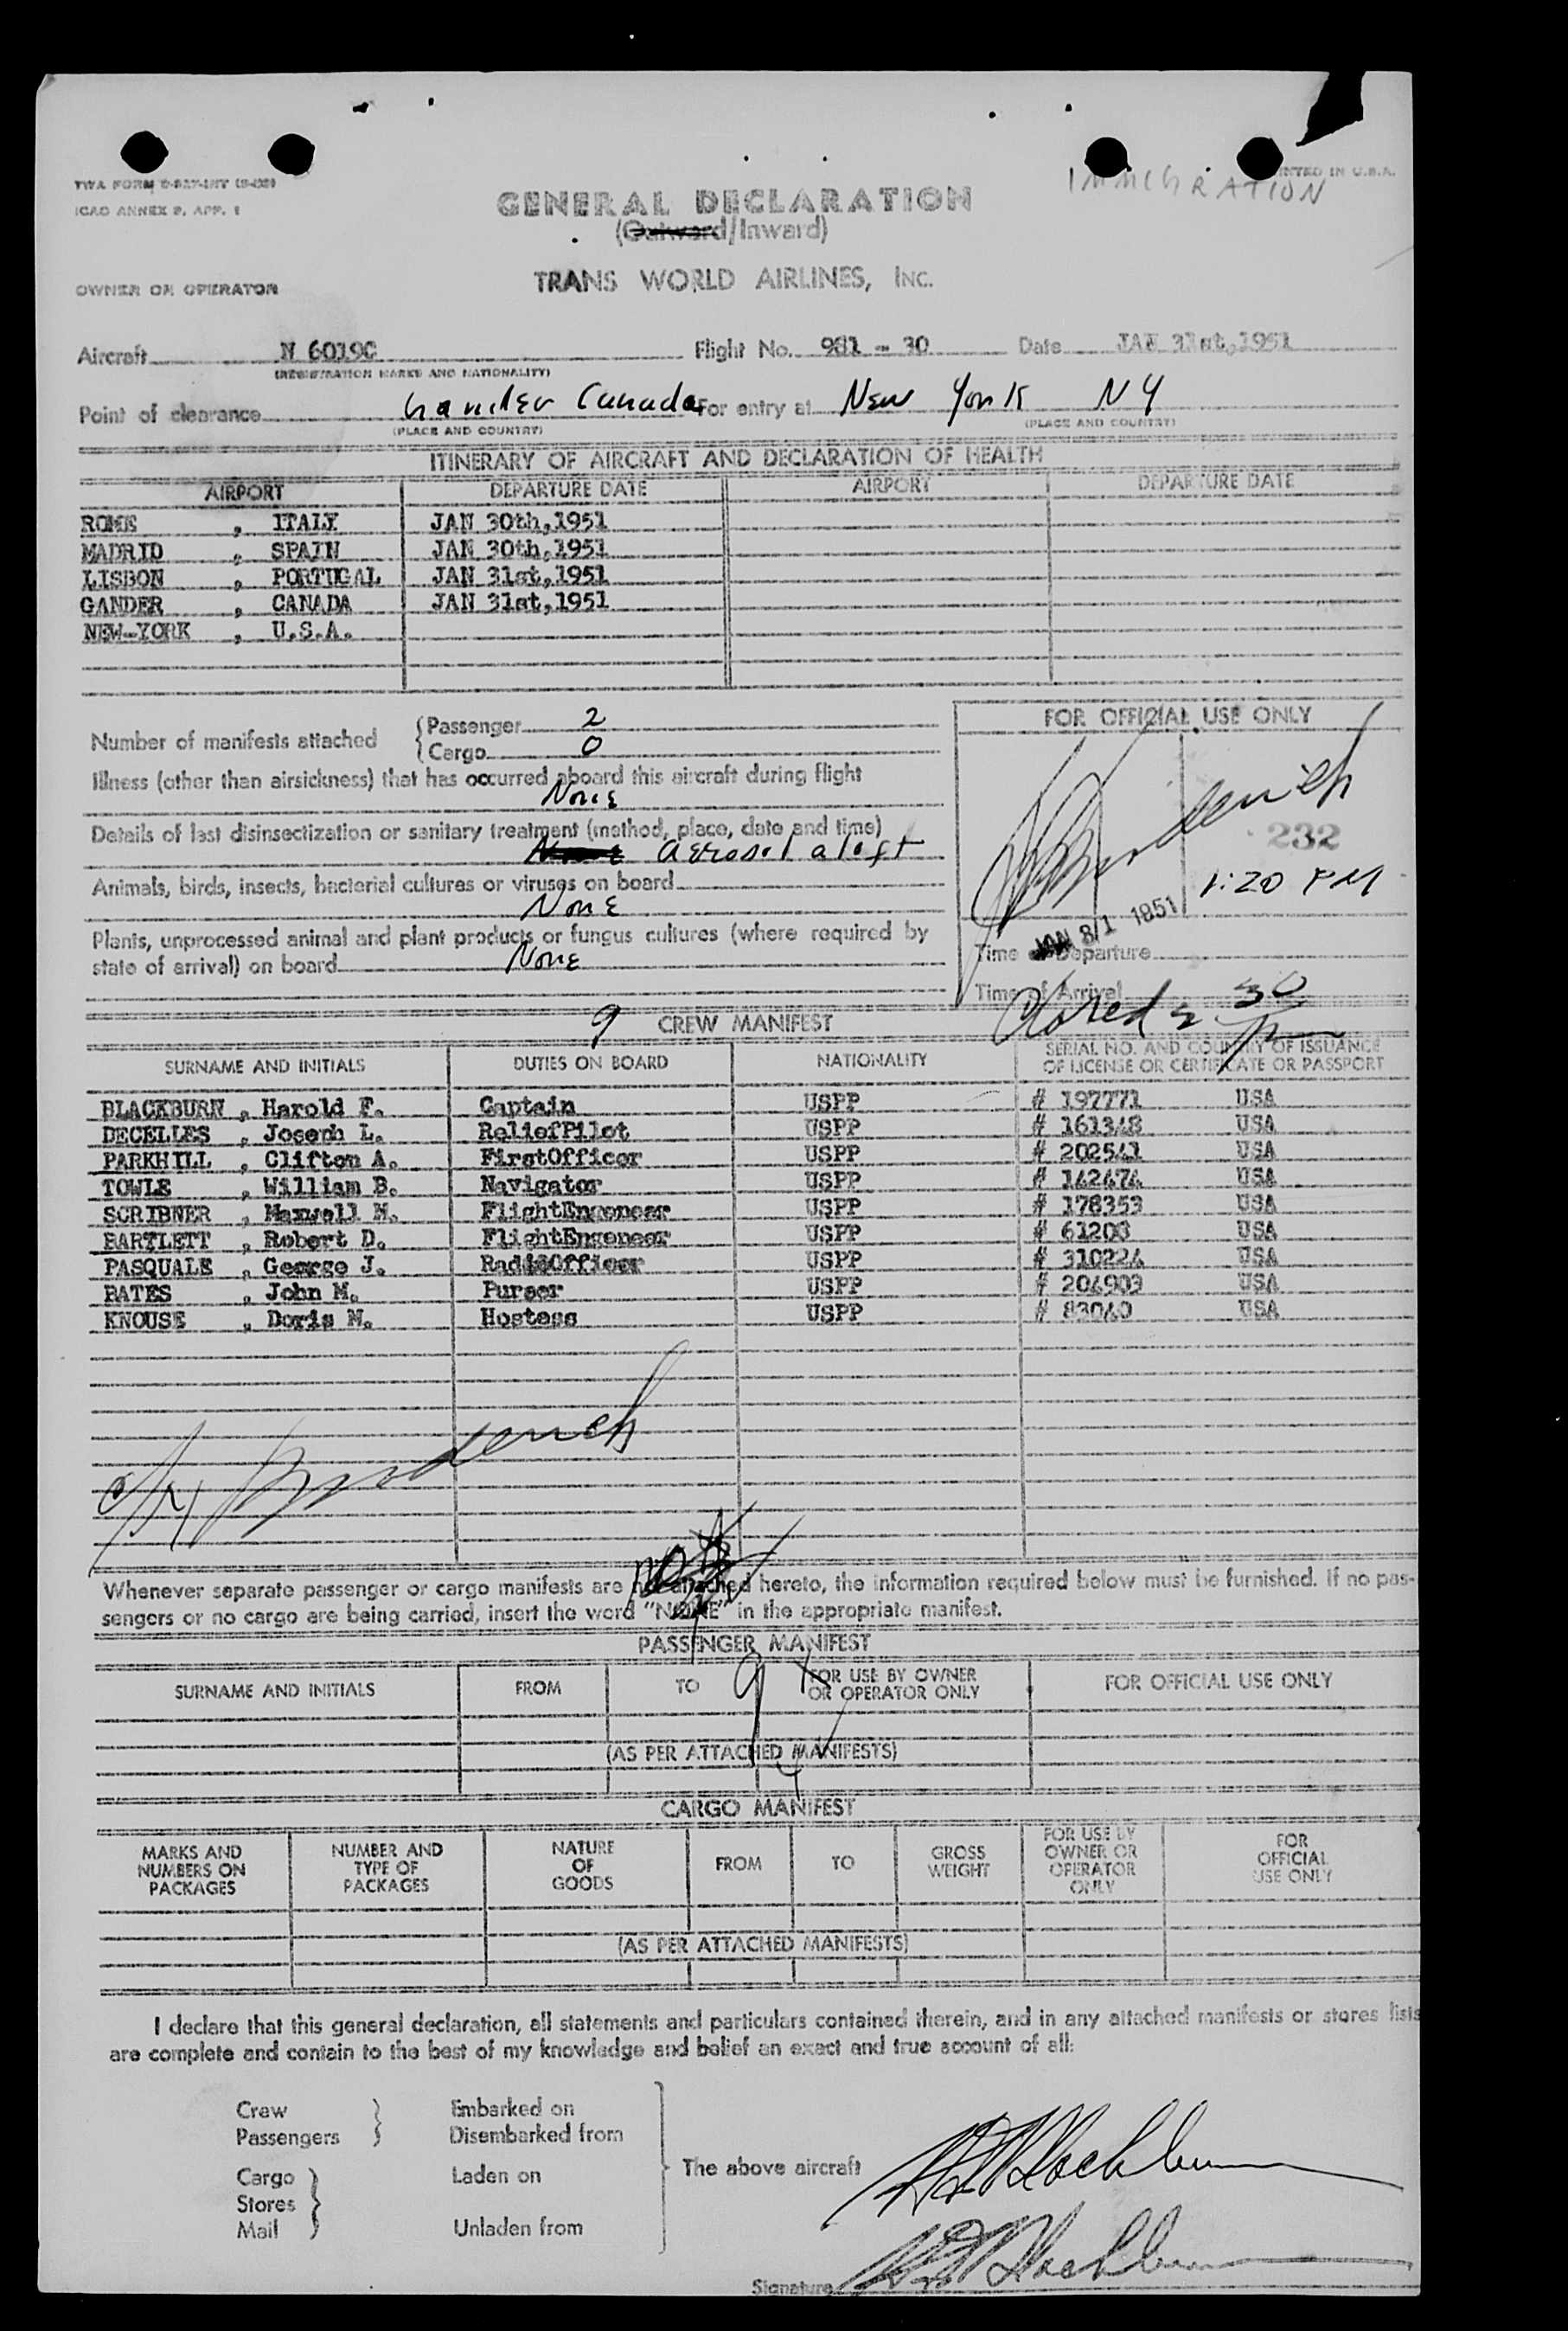 TWA FORM
ICAO ANNEX 9, APP. 1
PRINTED IN U.S.A.
IMMIGRATION
GENERAL DECLARATION
(Outward/Inward)
OWNER OR OPERATOR
TRANS WORLD AIRLINES, INC.
Aircraft N 6019C Flight No. 981 - 30 Date JAN 31st,1951
(REGISTRATION MARKS AND NATIONALITY)
Point of clearance Gander Canada For entry at New York NY
(PLACE AND COUNTRY) (PLACE AND COUNTRY)
ITINERARY OF AIRCRAFT AND DECLARATION OF HEALTH
AIRPORT DEPARTURE DATE AIRPORT DEPARTURE DATE
ROME , ITALY JAN 30th,1951
MADRID , SPAIN JAN 30th,1951
LISBON , PORTUGAL JAN 31st,1951
GANDER , CANADA JAN 31st,1951
NEW-YORK , U.S.A.
Number of manifests attached
Passenger 2
Cargo 0
Illness (other than airsickness) that has occurred aboard this aircraft during flight
None
Details of last disinsectization or sanitary treatment (method, place, date and time)
None aerosol aloft
Animals, birds, insects, bacterial cultures or viruses on board
None
Plants, unprocessed animal and plant products or fungus cultures (where required by
state of arrival) on board None
FOR OFFICIAL USE ONLY
232
1:20 PM
JAN 31 1951
Time of Departure
Time of Arrival
9 CREW MANIFEST
SURNAME AND INITIALS DUTIES ON BOARD NATIONALITY SERIAL NO. AND COUNTRY OF ISSUANCE
OF LICENSE OR CERTIFICATE OR PASSPORT
BLACKBURN , Harold F. Captain USPP # 197771 USA
DECELLES , Joseph L. ReliefPilot USPP # 161348 USA
PARKHILL , Clifton A. FirstOfficer USPP # 202541 USA
TOWLE , William B. Navigator USPP # 142474 USA
SCRIBNER , Maxwell M. FlightEngeneer USPP # 178353 USA
BARTLETT , Robert D. FlightEngeneer USPP # 61208 USA
PASQUALE , George J. RadioOfficer USPP # 310224 USA
BATES , John M. Purser USPP # 204903 USA
KNOUSE , Doris M. Hostess USPP # 83040 USA
Whenever separate passenger or cargo manifests are not attached hereto, the information required below must be furnished. If no pas-
sengers or no cargo are being carried, insert the word "NONE" in the appropriate manifest.
PASSENGER MANIFEST
SURNAME AND INITIALS FROM TO FOR USE BY OWNER
OR OPERATOR ONLY FOR OFFICIAL USE ONLY
9
(AS PER ATTACHED MANIFESTS)
CARGO MANIFEST
MARKS AND
NUMBERS ON
PACKAGES
NUMBER AND
TYPE OF
PACKAGES
NATURE
OF
GOODS
FROM
TO
GROSS
WEIGHT
FOR USE BY
OWNER OR
OPERATOR
ONLY
FOR
OFFICIAL
USE ONLY
(AS PER ATTACHED MANIFESTS)
I declare that this general declaration, all statements and particulars contained therein, and in any attached manifests or stores lists
are complete and contain to the best of my knowledge and belief an exact and true account of all:
Crew Embarked on
Passengers Disembarked from
The above aircraft
Cargo Laden on
Stores
Mail Unladen from
HF Blackburn
HF Blackburn
Signature